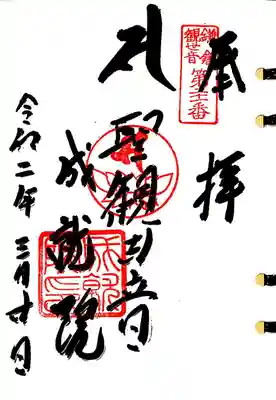 奉拝
鎌倉
観世音
第廿一番
聖観世音
成就院
令和二年三月廿日